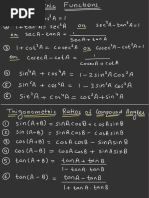 Functions
② 1+tan²A = sec²A or sec²A-tan²A=1
or secA-tanA = 1
secA+tanA
③ 1+cot²A = cosec²A or cosec²A-cot²A=1
or cosecA-cotA = 1
④ sin⁴A + cos⁴A = 1-2sin²Acos²A
⑤ sin⁶A + cos⁶A = 1-3sin²Acos²A
Trigonometric Ratios of Compound Angles
① sin(A+B) = sinAcosB+cosAsinB
② sin(A-B) = sinAcosB-cosAsinB
③ cos(A+B) = cosAcosB-sinAsinB
④ cos(A-B) = cosAcosB+sinAsinB
⑤ tan(A+B) = tanA+tanB
1-tanAtanB
⑥ tan(A-B) = tanA-tanB
1+tanAtanB